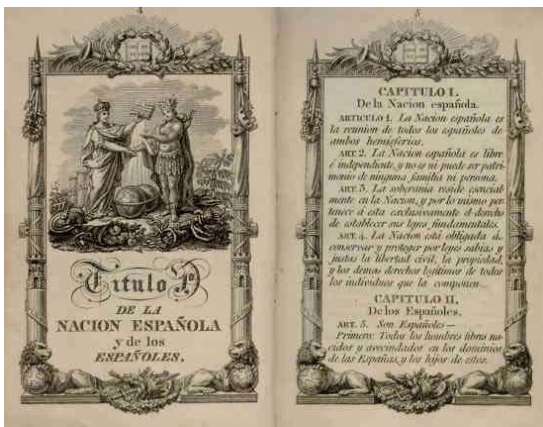 4
Titulo Iº
DE LA
NACION ESPAÑOLA
y de los
ESPAÑOLES.
5
CAPITULO I.
De la Nacion española.
ARTICULO 1. La Nacion española es
la reunion de todos los españoles de
ambos hemisferios.
ART. 2. La Nacion española es libre
é independiente, y no es ni puede ser patri-
monio de ninguna familia ni persona.
ART. 3. La soberania reside esencial-
mente en la Nacion, y por lo mismo per-
tenece á esta esclusivamente el derecho
de establecer sus leyes fundamentales.
ART. 4. La Nacion está obligada á
conservar y proteger por leyes sabias y
justas la libertad civil, la propiedad,
y los demas derechos legitimos de todos
los individuos que la componen.
CAPITULO II.
De los Españoles.
ART. 5. Son Españoles—
Primero: Todos los hombres libres na-
cidos y avecindados en los dominios
de las Españas, y los hijos de estos.